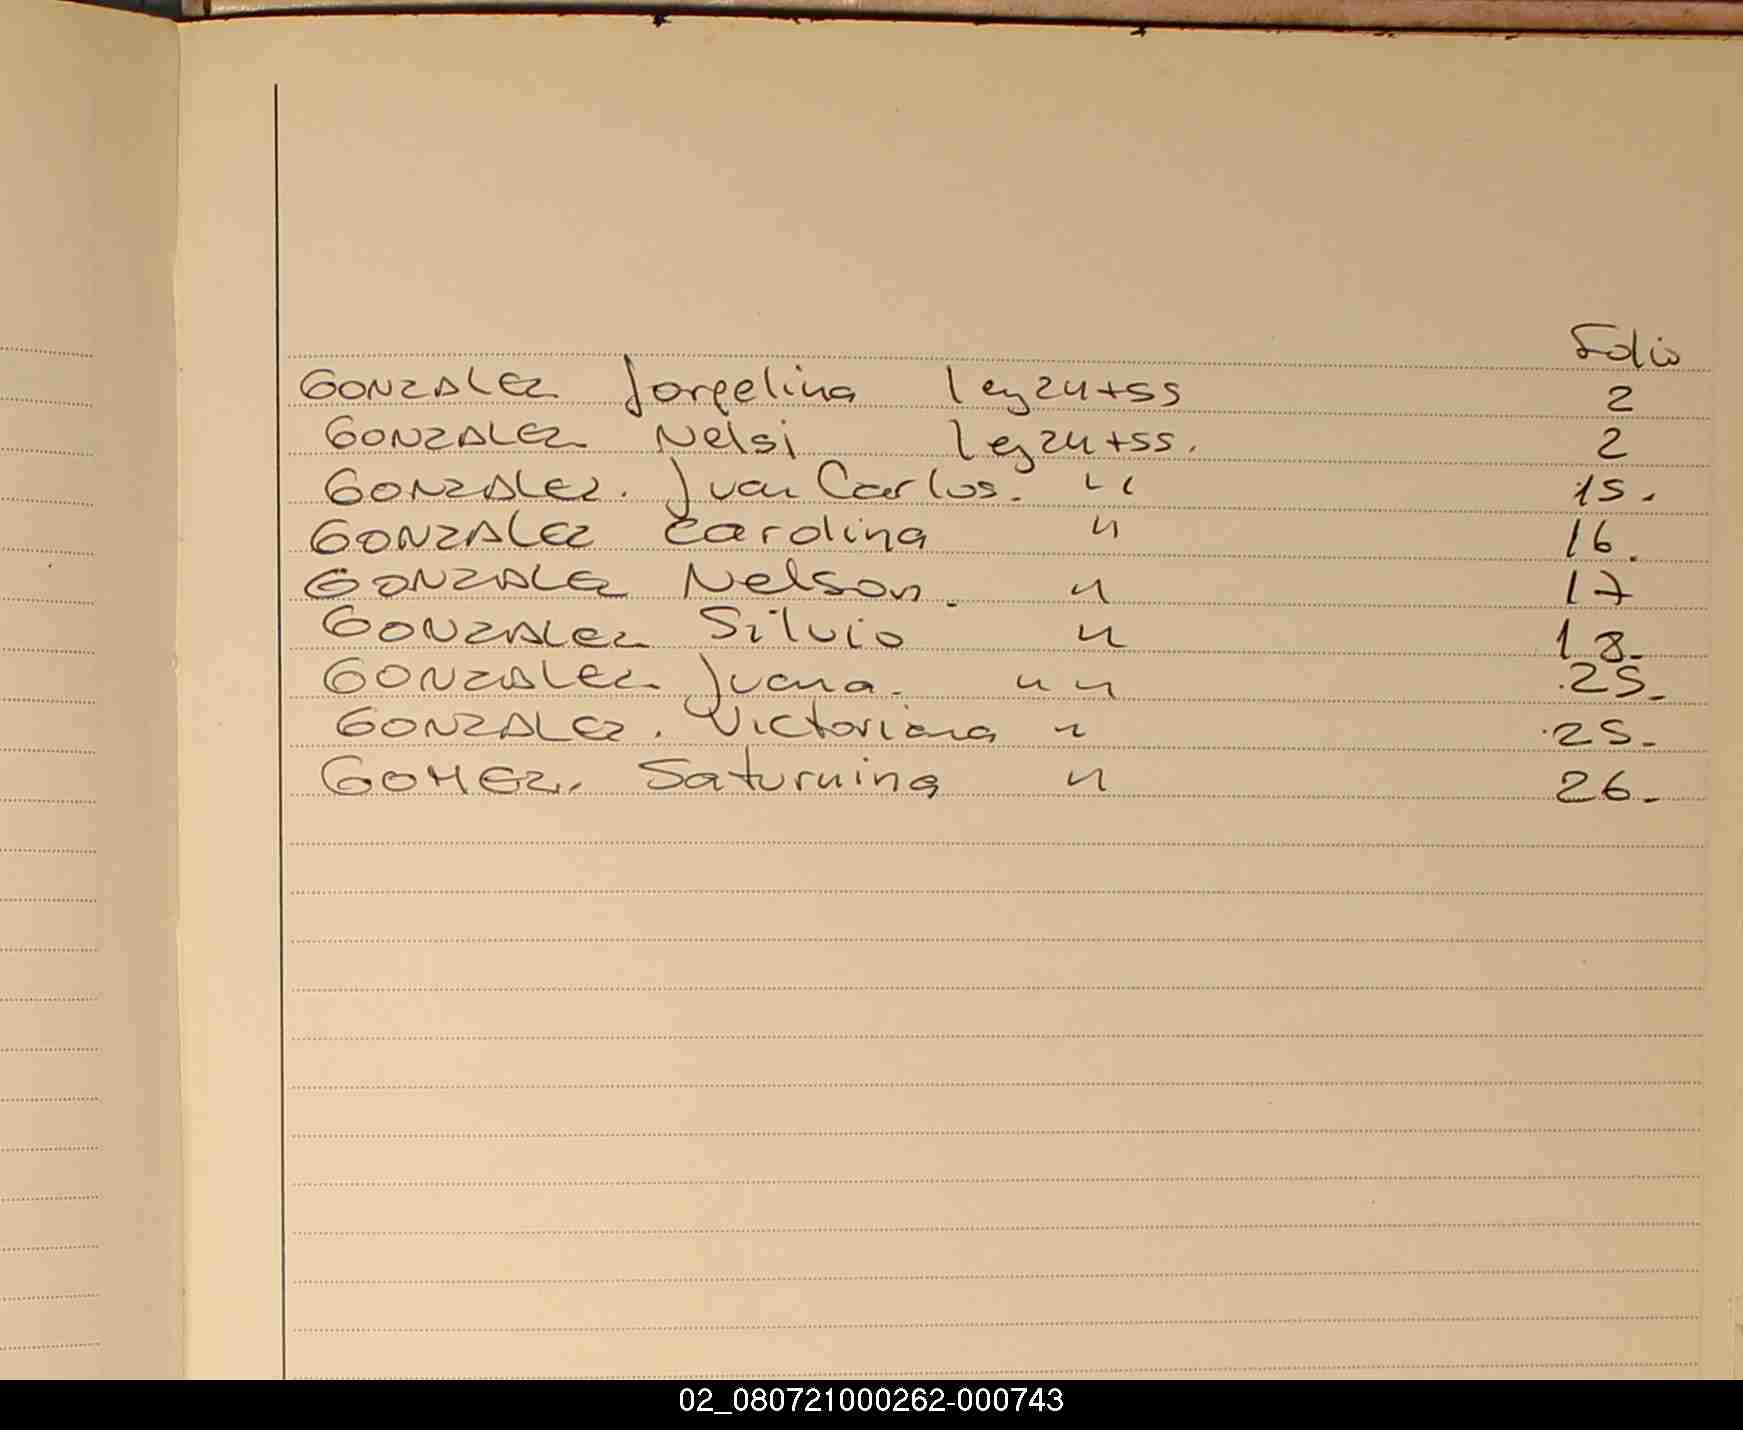 Folio
GONZALEZ Jorgelina ley 24455 2
GONZALEZ Nelsi ley 24455. 2
GONZALEZ. Juan Carlos. " 15.
GONZALEZ Carolina " 16.
GONZALEZ Nelson. " 17
GONZALEZ Silvio " 18.
GONZALEZ Juana. " " 25.
GONZALEZ. Victoriana " 25.
GOMEZ. Saturnina " 26.
02_080721000262-000743